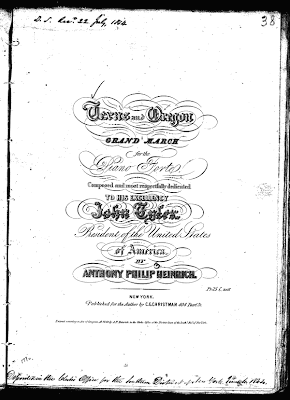 D. S. Rec. 22 July, 1844
38
Texas and Oregon
GRAND MARCH
for the
Piano Forte,
Composed and most respectfully dedicated
TO HIS EXCELLENCY
John Tyler,
President of the United States
of America,
BY
ANTHONY PHILIP HEINRICH.
Pr. 25 C. nett
NEW-YORK,
Published for the Author by C.E. CHRISTMAN
Deposited in the Clerks Office for the Southern District of New York 1844.